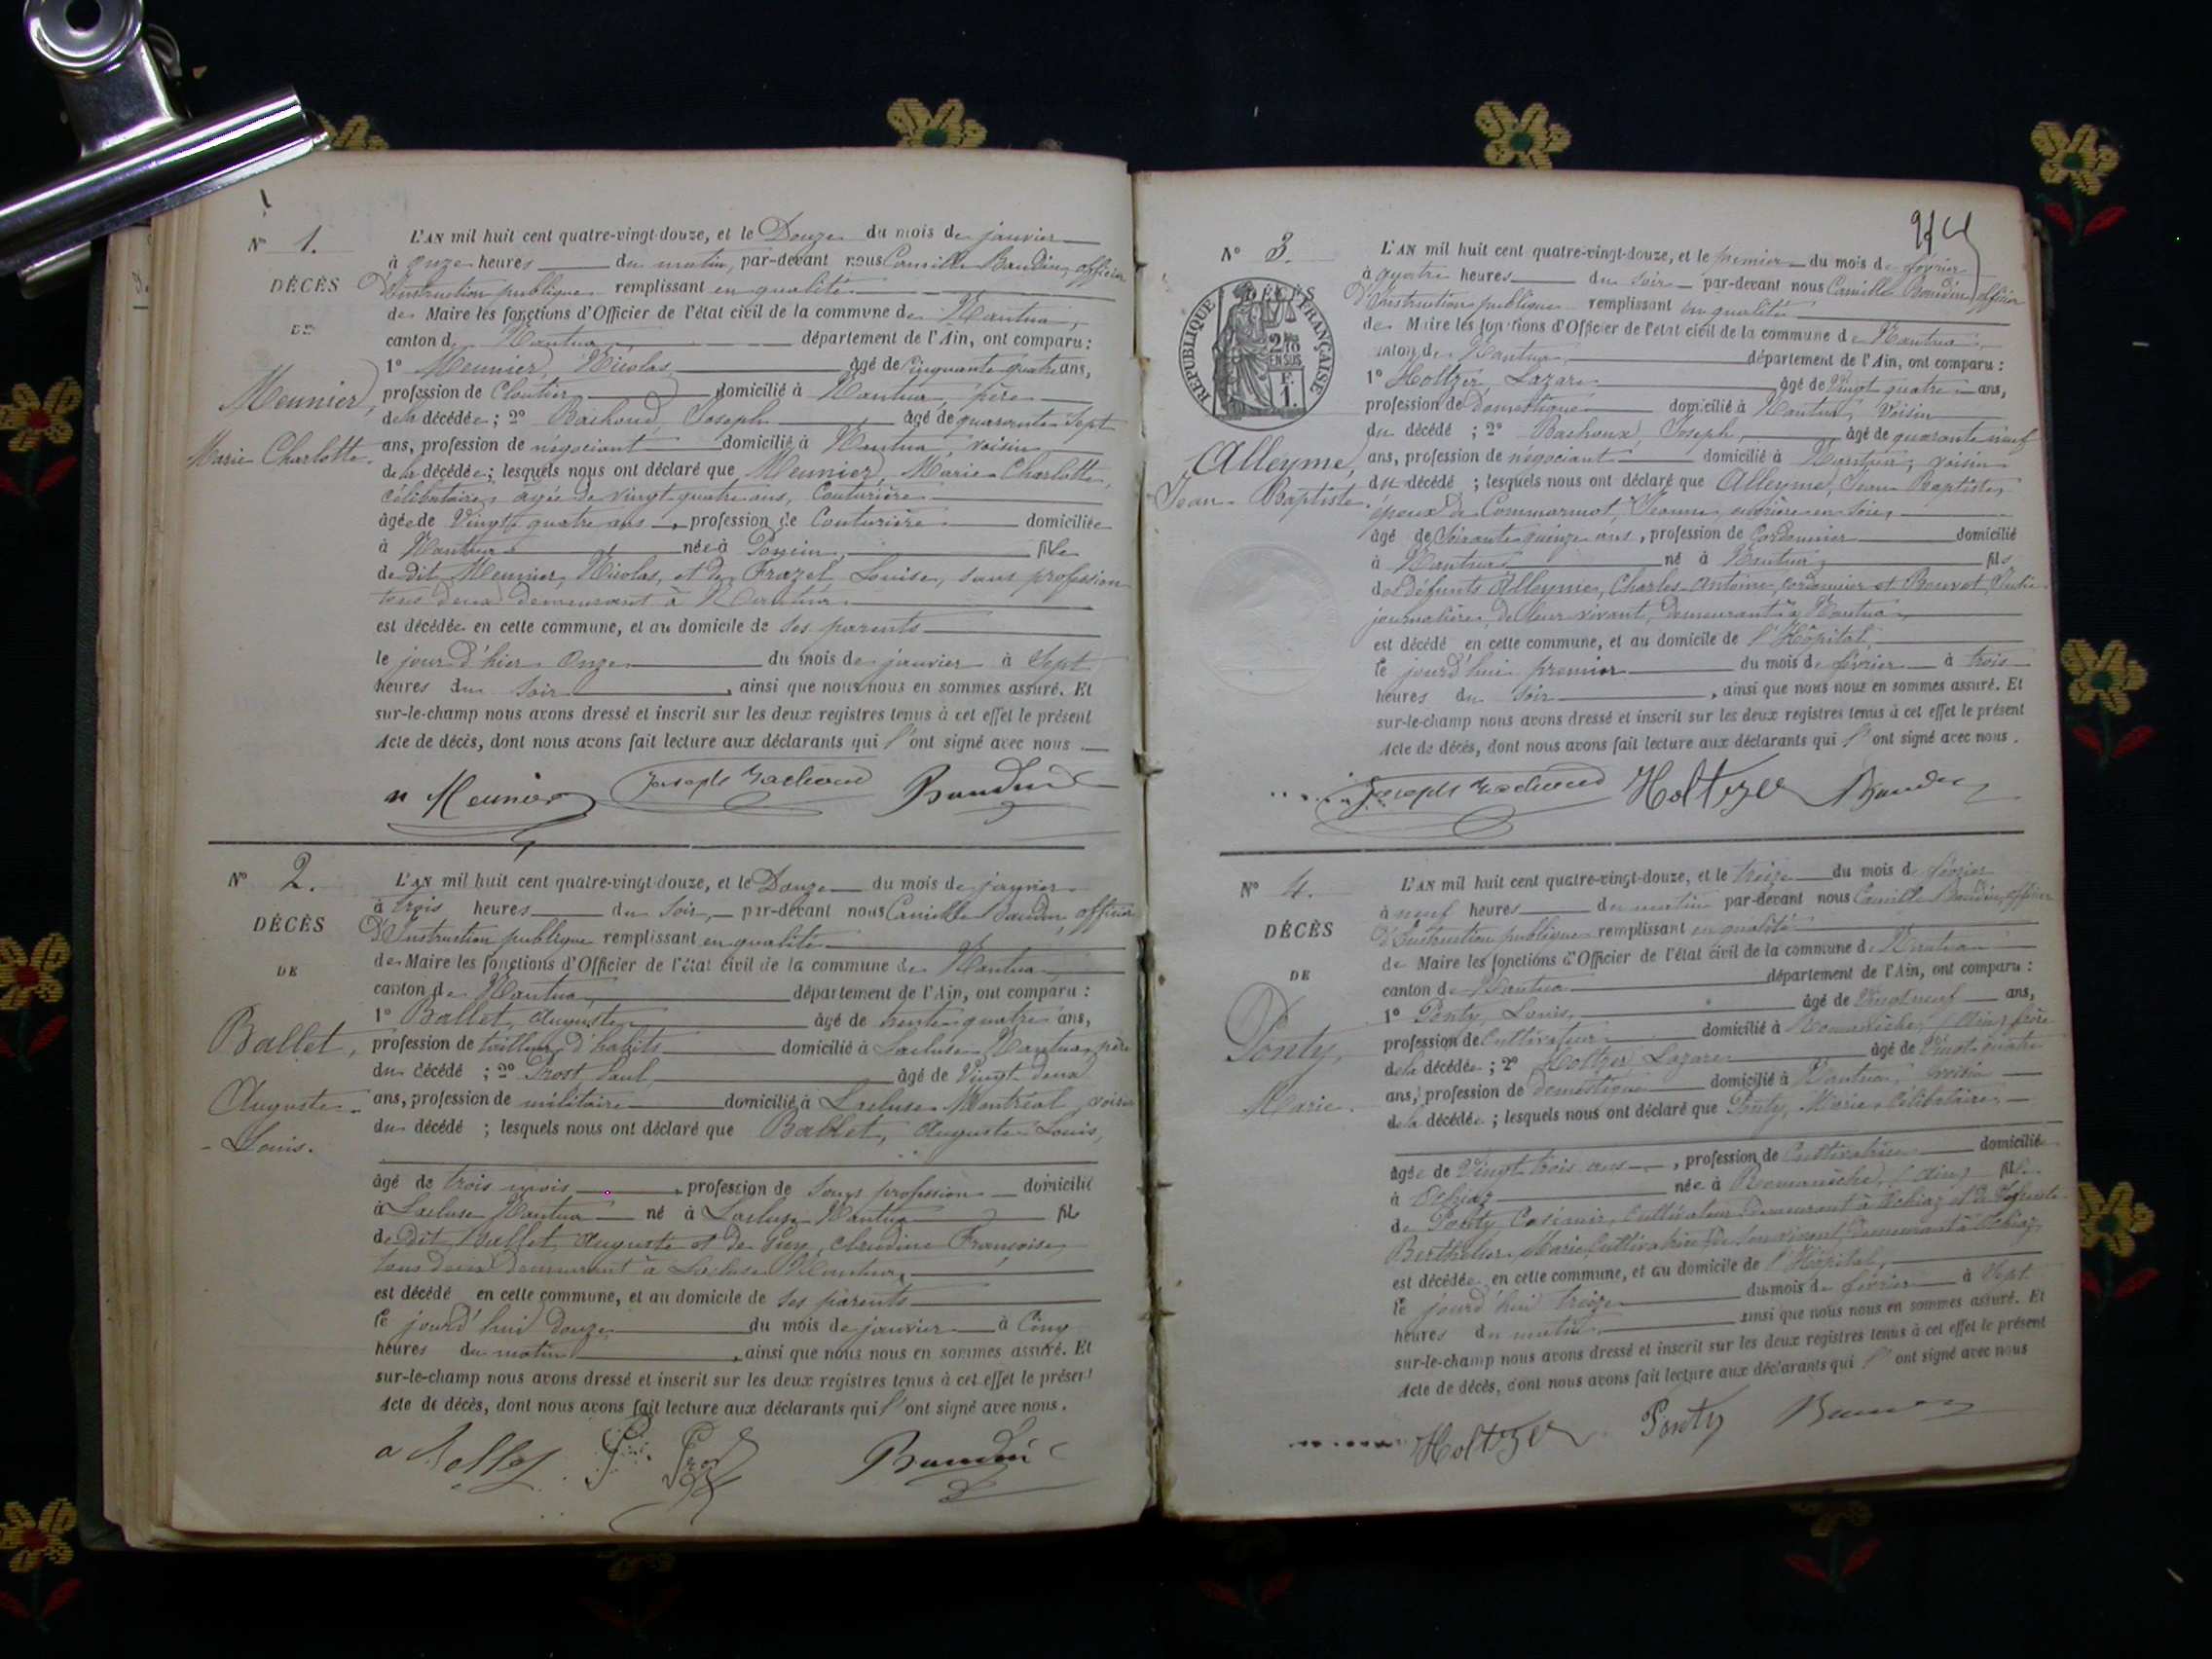 N° 1.
DÉCÈS
DE
Meunier,
Marie Charlotte.
L'AN mil huit cent quatre-vingt-douze, et le Douze du mois de janvier
à onze heures du matin, par-devant nous Camille Baudin, officier
d'Instruction publique remplissant en qualité
de Maire les fonctions d'Officier de l'état civil de la commune de Nantua,
canton de Nantua, département de l'Ain, ont comparu :
1° Meunier, Nicolas, âgé de cinquante quatre ans,
profession de Cloutier, domicilié à Nantua, père
de la décédée ; 2° Bachoud, Joseph âgé de quarante sept
ans, profession de négociant domicilié à Nantua voisin
de la décédée ; lesquels nous ont déclaré que Meunier, Marie Charlotte,
célibataire, âgée de vingt quatre ans, Couturière
âgée de Vingt quatre ans, profession de Couturière domiciliée
à Nantua née à fille
de dit Meunier, Nicolas, et de Frazet Louise, sans profession
tous deux demeurant à Nantua
est décédée en cette commune, et au domicile de ses parents
le jour d'hier Onze du mois de janvier à Sept
heures du soir, ainsi que nous nous en sommes assuré. Et
sur-le-champ nous avons dressé et inscrit sur les deux registres tenus à cet effet le présent
Acte de décès, dont nous avons fait lecture aux déclarants qui l'ont signé avec nous.
n Meunier Joseph Bachoud Baudin
N° 2.
DÉCÈS
DE
Ballet,
Auguste
Louis.
L'AN mil huit cent quatre-vingt-douze, et le Douze du mois de janvier
à trois heures du soir, par-devant nous Camille Baudin, officier
d'Instruction publique remplissant en qualité
de Maire les fonctions d'Officier de l'état civil de la commune de Nantua,
canton de Nantua, département de l'Ain, ont comparu :
1° Ballet, Auguste, âgé de trente quatre ans,
profession de tailleur d'habits domicilié à Lacluse Nantua, père
du décédé ; 2° Prost Paul, âgé de Vingt deux
ans, profession de militaire domicilié à Lacluse Montréal, voisin
du décédé ; lesquels nous ont déclaré que Ballet, Auguste Louis,
âgé de trois mois, profession de sans profession domicilié
à Lacluse Nantua né à Lacluse Nantua fils
de dit Ballet Auguste et de Claudine Françoise
tous deux demeurant à Lacluse Nantua,
est décédé en cette commune, et au domicile de ses parents
le jourd'hui douze du mois de janvier à Cinq
heures du matin, ainsi que nous nous en sommes assuré. Et
sur-le-champ nous avons dressé et inscrit sur les deux registres tenus à cet effet le présent
Acte de décès, dont nous avons fait lecture aux déclarants qui l'ont signé avec nous.
Baudin
N° 3.
DÉCÈS
RÉPUBLIQUE FRANÇAISE
2/10
EN SUS
F.
1.
Alleyme,
Jean Baptiste.
L'AN mil huit cent quatre-vingt-douze, et le premier du mois de février
à quatre heures du soir par-devant nous Camille Baudin, officier
d'Instruction publique remplissant en qualité
de Maire les fonctions d'Officier de l'état civil de la commune de Nantua,
canton de Nantua, département de l'Ain, ont comparu :
1° Holtzer, Lazare âgé de Vingt quatre ans,
profession de Domestique domicilié à Nantua, voisin
du décédé ; 2° Joseph, âgé de quarante neuf
ans, profession de négociant domicilié à Nantua, voisin
du décédé ; lesquels nous ont déclaré que Alleyme, Jean Baptiste,
époux de Commarmot, Jeanne, ouvrière en soie,
âgé de Soixante quinze ans, profession de Cordonnier domicilié
à Nantua né à Nantua fils
des défunts Alleyme, Charles Antoine, cordonnier et
journalière, de leur vivant, demeurant à Nantua
est décédé en cette commune, et au domicile de l'Hôpital,
le jourd'hui premier du mois de février à trois
heures du soir, ainsi que nous nous en sommes assuré. Et
sur-le-champ nous avons dressé et inscrit sur les deux registres tenus à cet effet le présent
Acte de décès, dont nous avons fait lecture aux déclarants qui l'ont signé avec nous.
Joseph Bachoud Holtzer Baudin
N° 4.
DÉCÈS
DE
Ponty,
Marie.
L'AN mil huit cent quatre-vingt-douze, et le treize du mois de février
à neuf heures du matin par-devant nous Camille Baudin, officier
d'Instruction publique remplissant en qualité
de Maire les fonctions d'Officier de l'état civil de la commune de Nantua
canton de Nantua département de l'Ain, ont comparu :
1° Ponty, Louis, âgé de Vingt neuf ans,
profession de Cultivateur domicilié à Romanèche, (Ain) frère
de la décédée ; 2° Holtzer Lazare âgé de Vingt quatre
ans, profession de domestique domicilié à Nantua, voisin
de la décédée ; lesquels nous ont déclaré que Ponty, Marie, Célibataire,
âgée de Vingt trois ans, profession de Cultivatrice domiciliée
à Echiaz née à Romanèche, (Ain) fille
de Ponty, Casimir, Cultivateur, demeurant à Echiaz et de défunte
Berthelier Marie Cultivatrice de son vivant demeurant à Echiaz,
est décédée en cette commune, et au domicile de l'Hôpital,
le jourd'hui treize du mois de février à Sept
heures du matin, ainsi que nous nous en sommes assuré. Et
sur-le-champ nous avons dressé et inscrit sur les deux registres tenus à cet effet le présent
Acte de décès, dont nous avons fait lecture aux déclarants qui l'ont signé avec nous
Holtzer Ponty